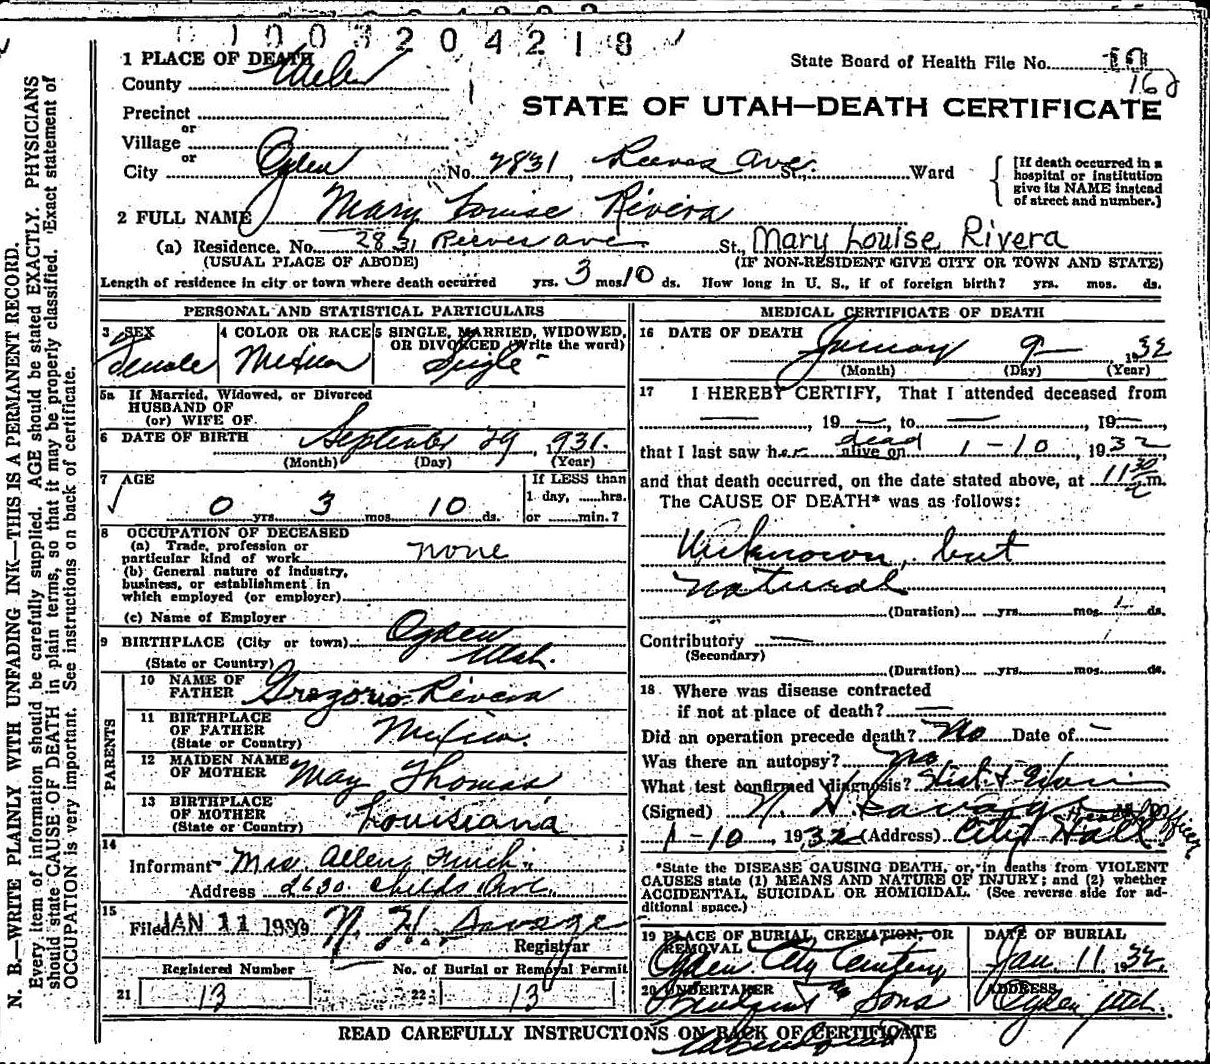 1 0 0 3 2 0 4 2 1 8
1 PLACE OF DEATH
State Board of Health File No.
162
County Weber
STATE OF UTAH—DEATH CERTIFICATE
Precinct
or
Village
or
City Ogden No. 2831, Reeves Ave. St., Ward
[If death occurred in a
hospital or institution
give its NAME instead
of street and number.]
2 FULL NAME Mary Louise Rivera
(a) Residence. No. 2831 Reeves ave St., Mary Louise Rivera
(USUAL PLACE OF ABODE) (IF NON-RESIDENT GIVE CITY OR TOWN AND STATE)
Length of residence in city or town where death occurred yrs. 3 mos. 10 ds. How long in U. S., if of foreign birth? yrs. mos. ds.
PERSONAL AND STATISTICAL PARTICULARS
3 SEX
Female
4 COLOR OR RACE
Mexican
5 SINGLE, MARRIED, WIDOWED,
OR DIVORCED (Write the word)
Single
5a If Married, Widowed, or Divorced
HUSBAND OF
(or) WIFE OF
6 DATE OF BIRTH September 29, 1931.
(Month) (Day) (Year)
7 AGE
0 yrs. 3 mos. 10 ds.
If LESS than
1 day, hrs.
or min.?
8 OCCUPATION OF DECEASED
(a) Trade, profession or
particular kind of work none
(b) General nature of industry,
business, or establishment in
which employed (or employer)
(c) Name of Employer
9 BIRTHPLACE (City or town) Ogden
(State or Country) Utah.
PARENTS
10 NAME OF
FATHER Gregorio Rivera
11 BIRTHPLACE
OF FATHER Mexico.
(State or Country)
12 MAIDEN NAME
OF MOTHER May Thomas
13 BIRTHPLACE
OF MOTHER Louisiana
(State or Country)
14
Informant Mrs Allen
Address 2630 Childs Ave.
15
Filed JAN 11 N. H. Savage
Registrar
Registered Number No. of Burial or Removal Permit
21 13 22 13
MEDICAL CERTIFICATE OF DEATH
16 DATE OF DEATH
January 9— , 1932
(Month) (Day) (Year)
17 I HEREBY CERTIFY, That I attended deceased from
— , 19—, to — , 19—
that I last saw her alive on dead 1-10, 1932
and that death occurred, on the date stated above, at 11 30 m.
The CAUSE OF DEATH* was as follows:
Unknown, but
natural
(Duration) yrs. mos. 1 ds.
Contributory —
(Secondary)
(Duration) yrs. mos. ds.
18 Where was disease contracted
if not at place of death? —
Did an operation precede death? No Date of —
Was there an autopsy? No
What test confirmed diagnosis? Hist &
(Signed) N. H. Savage Health Officer
1-10, 1932 (Address) City Hall
*State the DISEASE CAUSING DEATH, or, in deaths from VIOLENT
CAUSES state (1) MEANS AND NATURE OF INJURY; and (2) whether
ACCIDENTAL, SUICIDAL OR HOMICIDAL. (See reverse side for ad-
ditional space.)
19 PLACE OF BURIAL, CREMATION, OR
REMOVAL
Ogden City Cemetery
DATE OF BURIAL
Jan. 11 1932.
20 UNDERTAKER
& Sons
ADDRESS
Ogden Utah.
READ CAREFULLY INSTRUCTIONS ON BACK OF CERTIFICATE
N. B.—WRITE PLAINLY WITH UNFADING INK—THIS IS A PERMANENT RECORD.
Every item of information should be carefully supplied. AGE should be stated EXACTLY. PHYSICIANS
should state CAUSE OF DEATH in plain terms, so that it may be properly classified. Exact statement of
OCCUPATION is very important. See instructions on back of certificate.